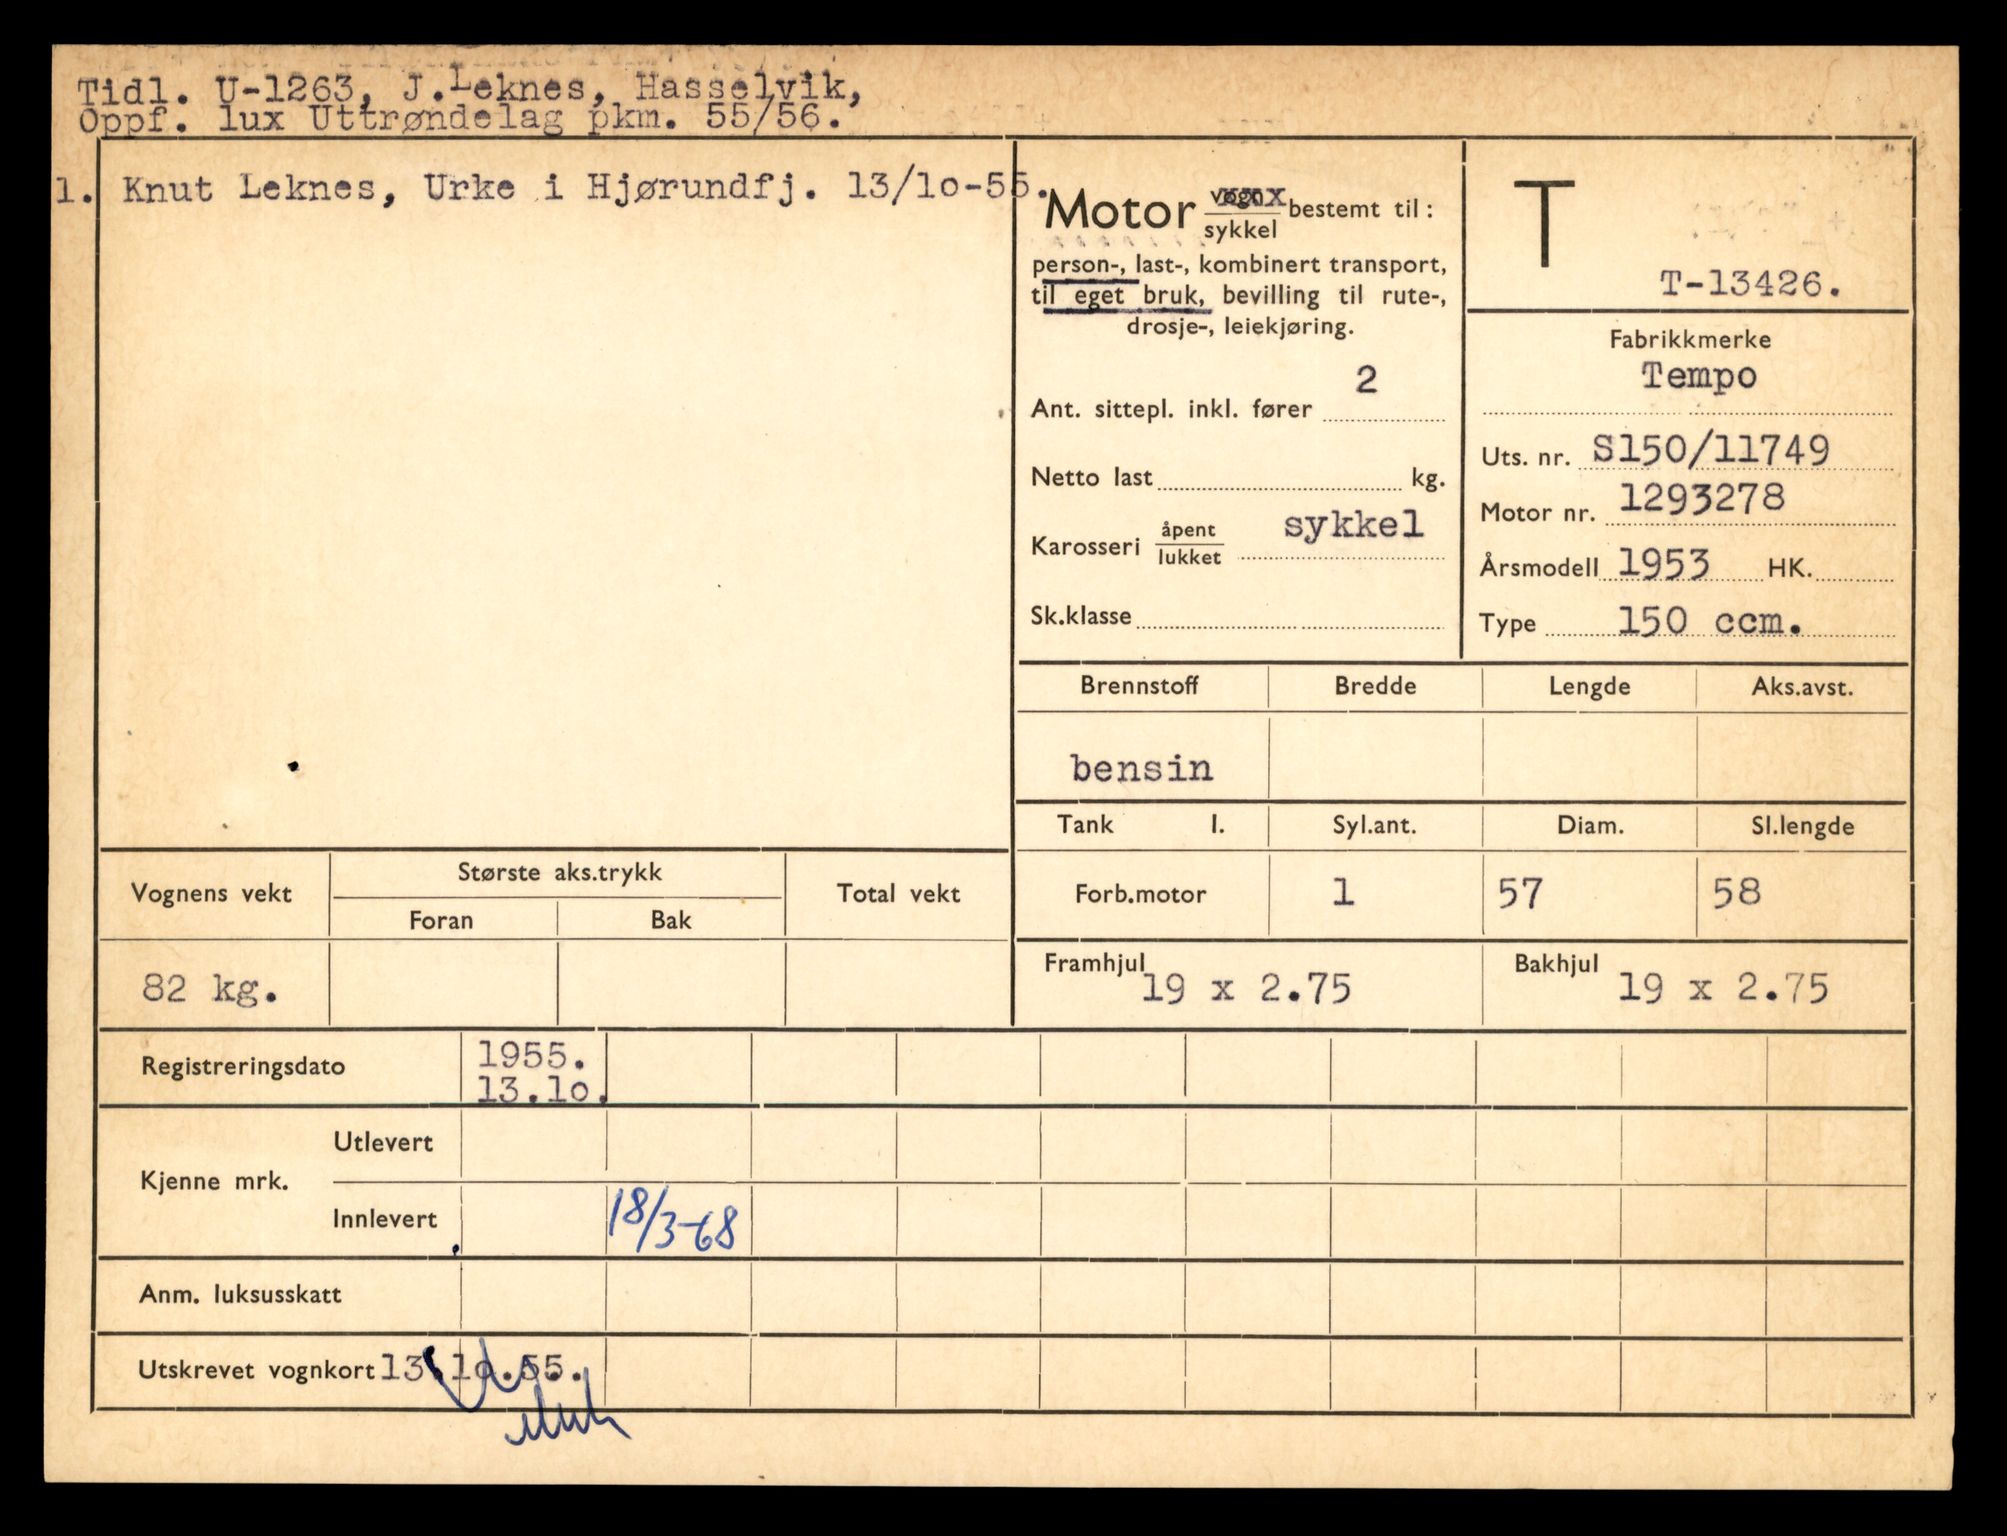 Tidl. U-1263, J.Leknes, Hasselvik,
Oppf. lux Uttrøndelag pkm. 55/56.
1. Knut Leknes, Urke i Hjørundfj. 13/10-55.
Motor vogn bestemt til:
sykkel
person-, last-, kombinert transport,
til eget bruk, bevilling til rute-,
drosje-, leiekjøring.
Ant. sittepl. inkl. fører 2
Netto last kg.
Karosseri åpent sykkel
lukket
Sk.klasse
T
T-13426.
Fabrikkmerke
Tempo
Uts. nr. S150/11749
Motor nr. 1293278
Årsmodell 1953 HK.
Type 150 ccm.
Brennstoff Bredde Lengde Aks.avst.
bensin
Tank l. Syl.ant. Diam. Sl.lengde
Forb.motor 1 57 58
Framhjul 19 x 2.75 Bakhjul 19 x 2.75
Vognens vekt Største aks.trykk Total vekt
Foran Bak
82 kg.
Registreringsdato 1955.
13.10.
Kjenne mrk. Utlevert
Innlevert 18/3-68
Anm. luksusskatt
Utskrevet vognkort 13.10.55.